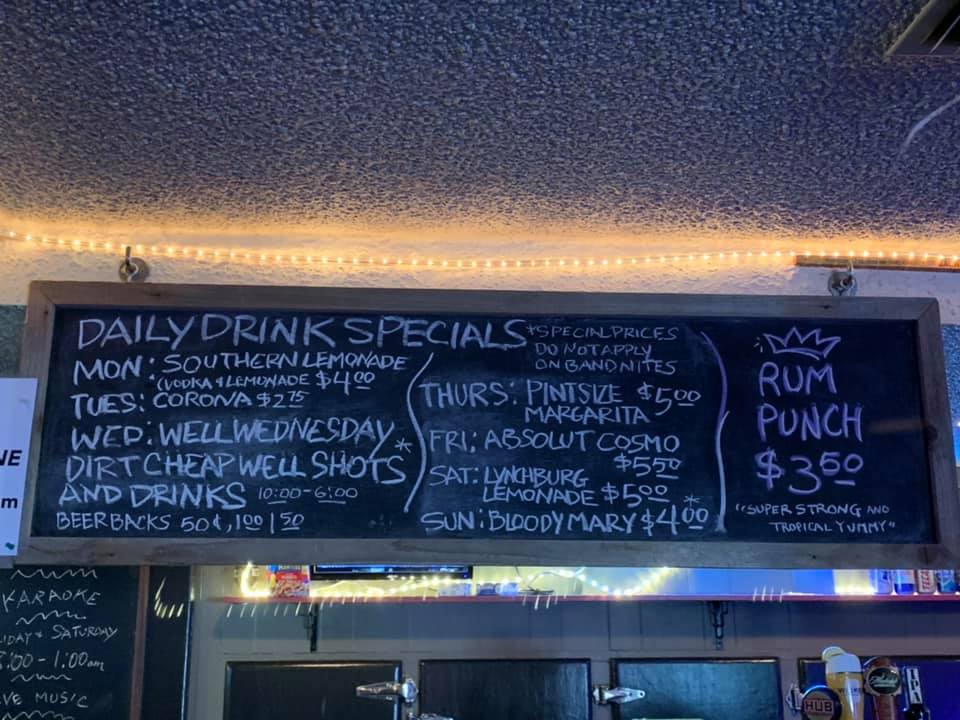 DAILY DRINK SPECIALS
*SPECIAL PRICES
DO NOT APPLY
ON BAND NITES
MON: SOUTHERN LEMONADE
(VODKA & LEMONADE $4.00
TUES: CORONA $2.75
WED: WELL WEDNESDAY
DIRT CHEAP WELL SHOTS*
AND DRINKS 10:00-6:00
BEER BACKS 50¢, 1.00 1.50
THURS: PINTSIZE $5.00
MARGARITA
FRI: ABSOLUT COSMO
$5.50
SAT: LYNCHBURG
LEMONADE $5.00
SUN: BLOODY MARY $4.00*
RUM
PUNCH
$3.50
"SUPER STRONG AND
TROPICAL YUMMY"
NE
m
KARAOKE
SATURDAY
- 1:00am
MUSIC
HUB
IPA